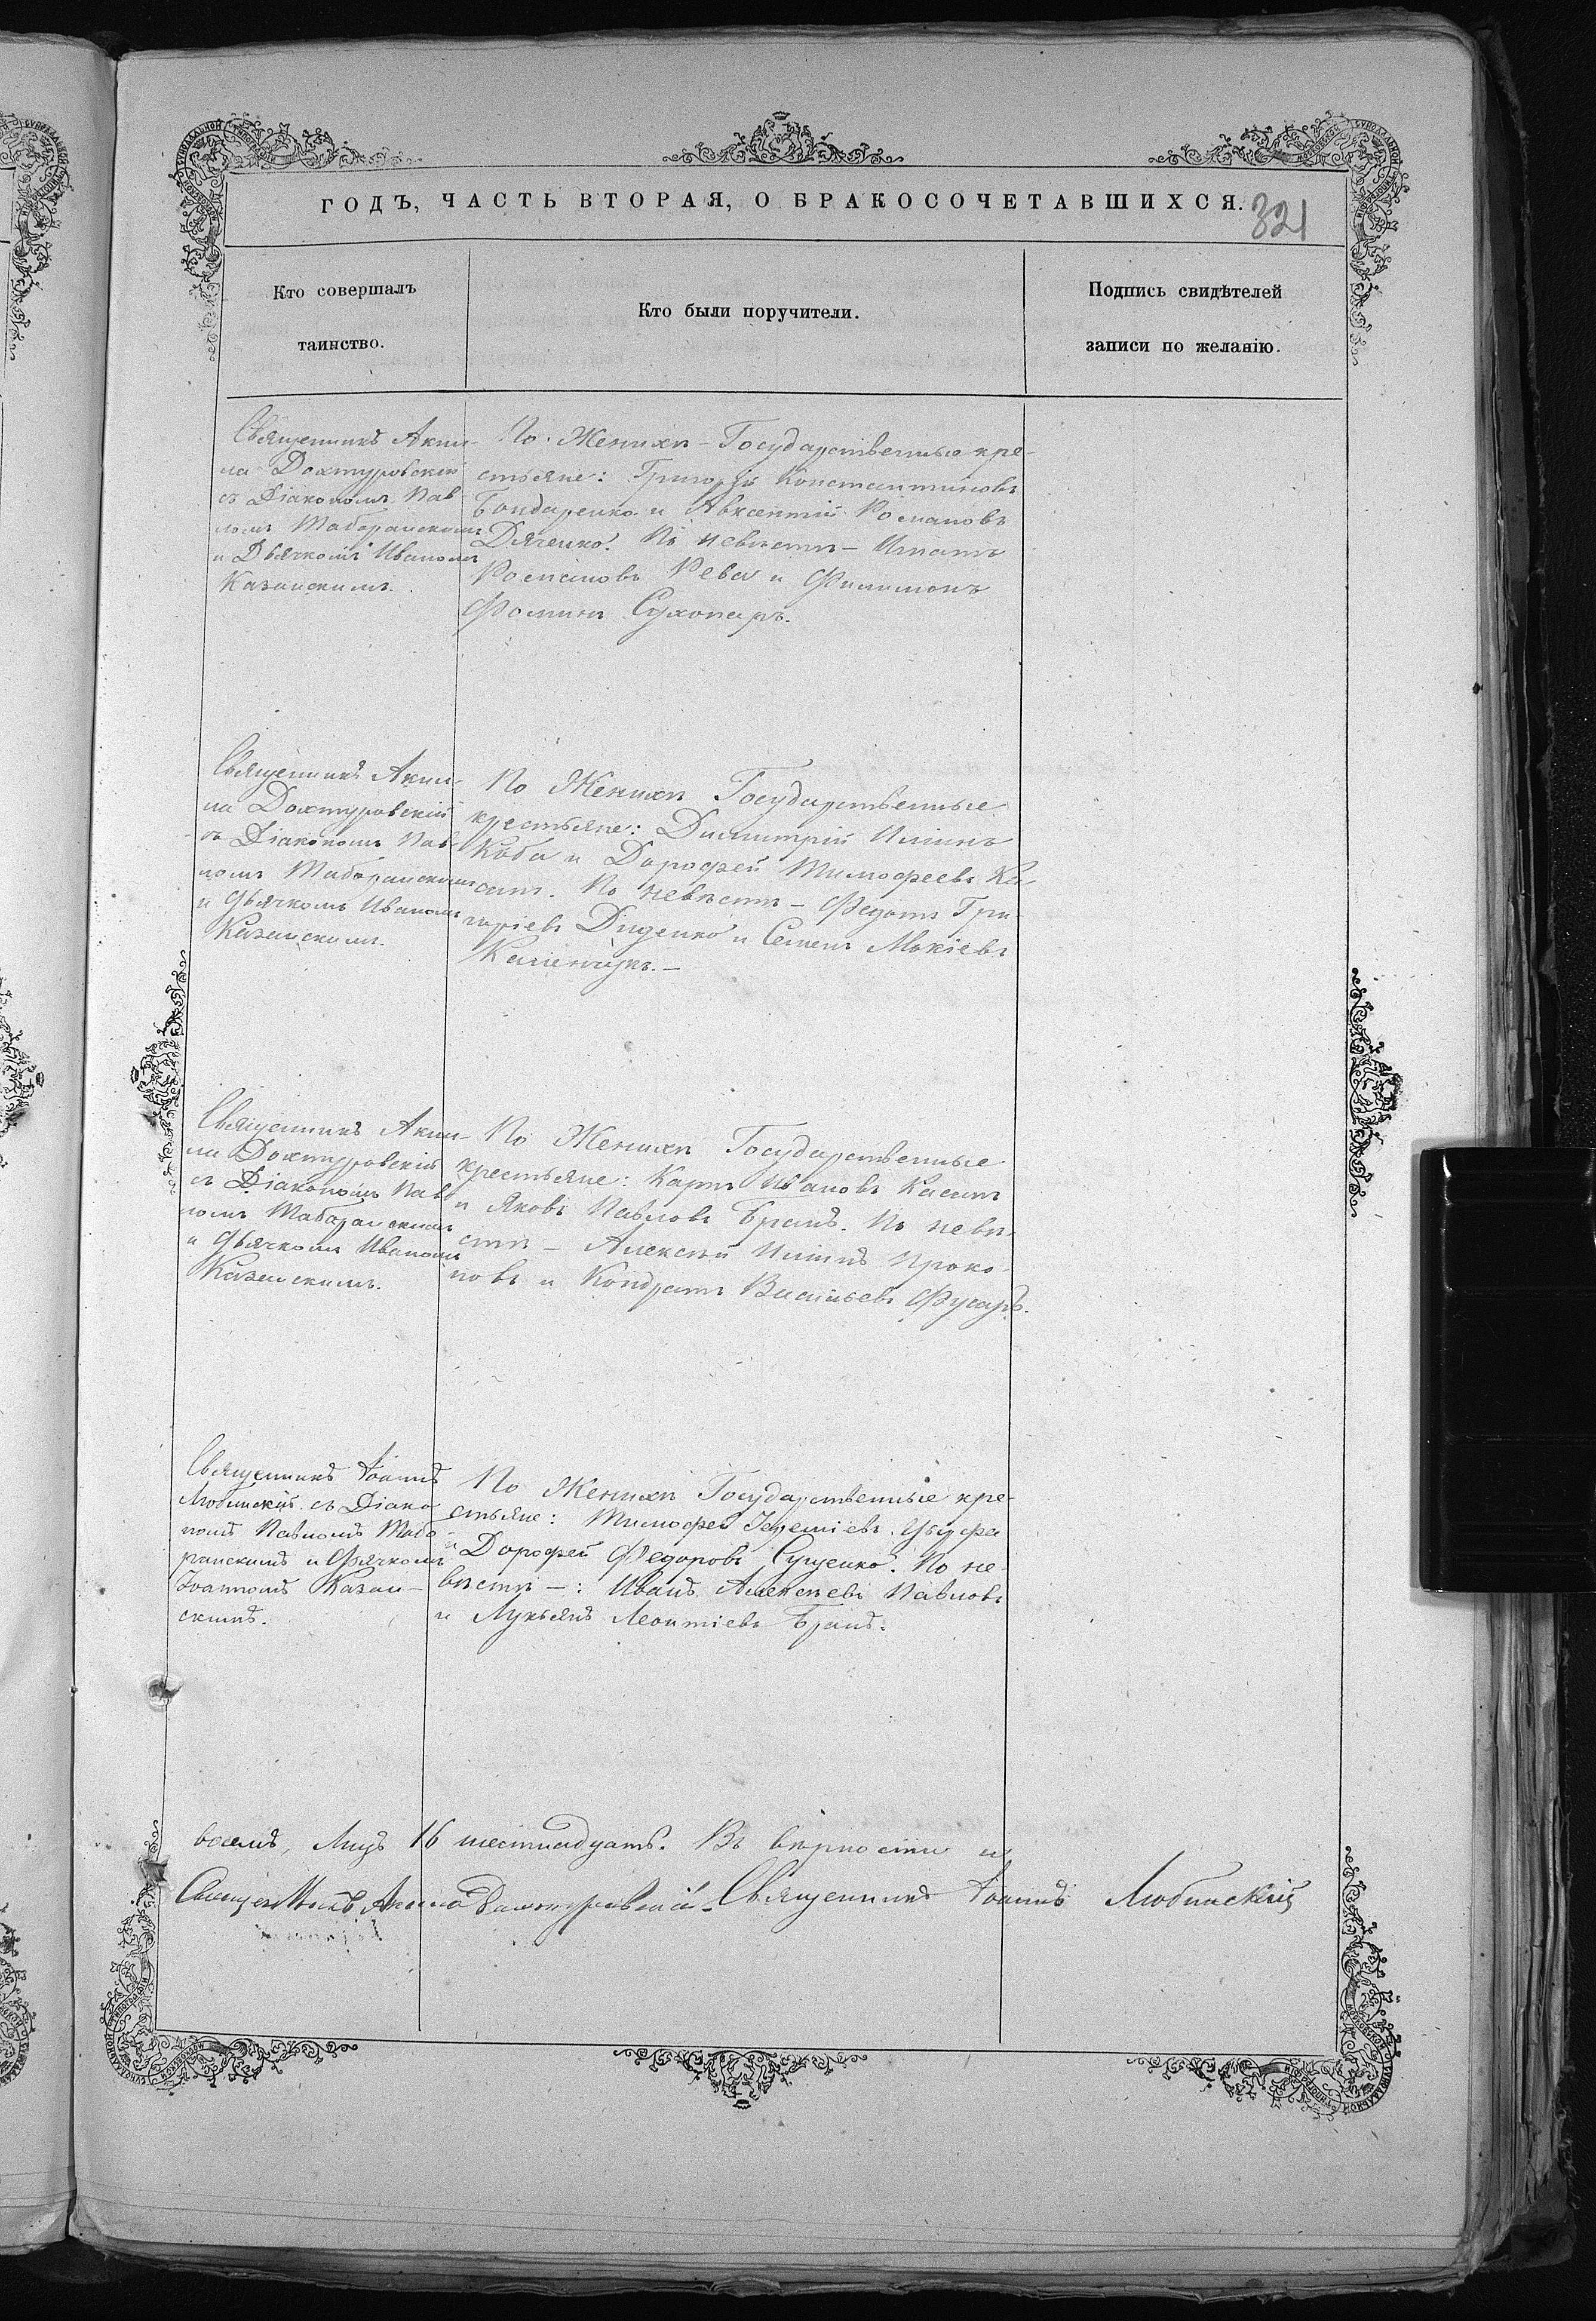 ГОДЪ, ЧАСТЬ ВТОРАЯ, О БРАКОСОЧЕТАВШИХСЯ.
321
Кто совершалъ
таинство.
Кто были поручители.
Подпись свидѣтелей
записи по желанію.
Священникъ Аки-
ла Дохтуровскій
съ Діакономъ Пав-
ломъ Таборанскимъ
и Дьячкомъ Иваномъ
Казанскимъ.
По Женихѣ - Государственные кре-
стьяне: Григорій Константиновъ
Бондаренко и Авксентій Романовъ
Дяченко. По невѣстѣ - Игнатъ
Романовъ Рева и Филимонъ
Фоминъ Сухопаръ.
Священникъ Аки-
ла Дохтуровскій
съ Діакономъ Пав-
ломъ Таборанскимъ
и Дьячкомъ Иваномъ
Казанскимъ.
По Женихѣ Государственные
крестьяне: Димитрій Ильинъ
Коба и Дорофей Тимофеевъ Ка-
сатъ. По невѣстѣ - Федотъ Гри-
горіевъ Диденко и Семенъ Мокіевъ
Каленчукъ. -
Священникъ Аки-
ла Дохтуровскій
съ Діакономъ Пав-
ломъ Таборанскимъ
и Дьячкомъ Иваномъ
Казанскимъ.
По Женихѣ Государственные
крестьяне: Карпъ Ивановъ Касатъ
и Яковъ Павловъ Браиъ. По невѣ-
стѣ - Алексѣй Ильинъ Проко-
повъ и Кондратъ Васильевъ
Священникъ Іоаннъ
Любинскій съ Діако-
номъ Павломъ Табо-
ранскимъ и Дьячкомъ
Іоанномъ Казан-
скимъ.
По Женихѣ Государственные кре-
стьяне: Тимофей Іереміевъ
и Дорофей Федоровъ Сущенко. По не-
вѣстѣ -: Иванъ Алексѣевъ Павловъ
и Лукьянъ Леонтіевъ Браиъ.
восемь, Лицъ 16 шестнадцать. Въ вѣрности
Священникъ Акила Дохтуровскій. Священникъ Іоаннъ Любинскій